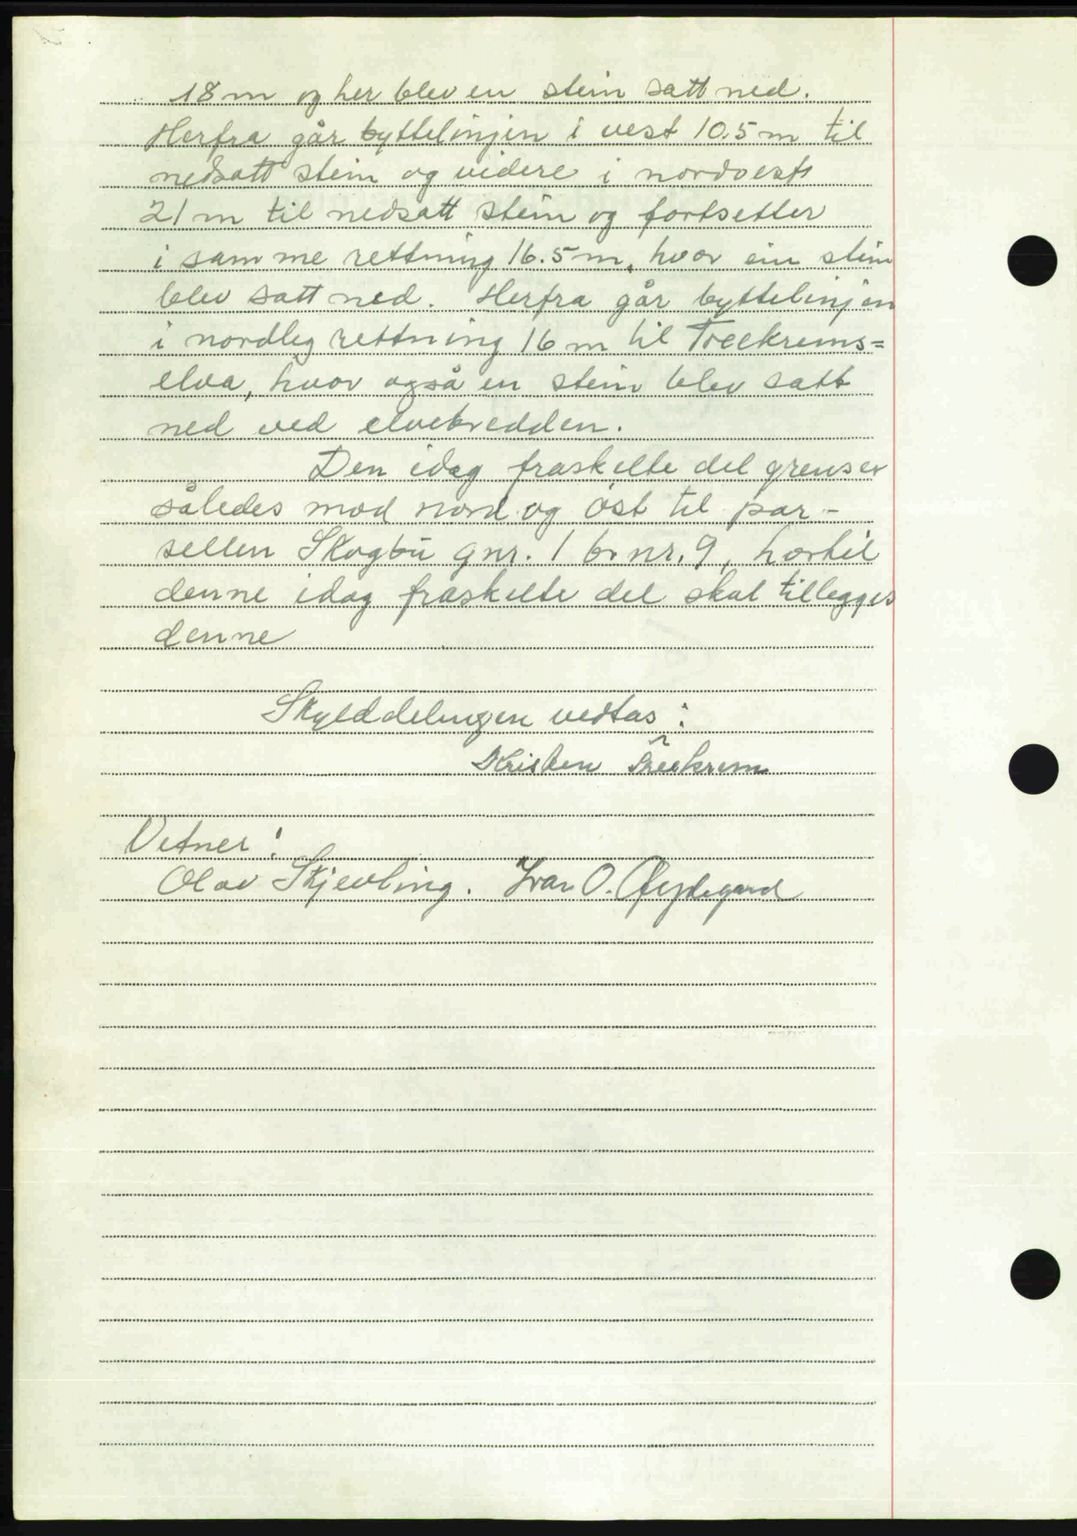 18 m og her blev en stein satt ned.
Herfra går byttelinjen i vest 10.5 m til
nedsatt stein og videre i nordvest
21 m til nedsatt stein og fortsetter
i samme rettning 16.5 m, hvor ein stein
blev satt ned. Herfra går byttelinjen
i nordleg rettning 16 m til Treekrems=
elva, hvor også en stein blev satt
ned ved elvebredden.
Den idag fraskelte del grenser
således mod nord og öst til par-
sellen Skogbu gnr. 1 br nr. 9, hvortil
denne idag fraskelte del skal tillegges
denne
Skylddelingen vedtas:
Kristen Treekrem
Vitner:
Olav Skjevling. Ivar O.